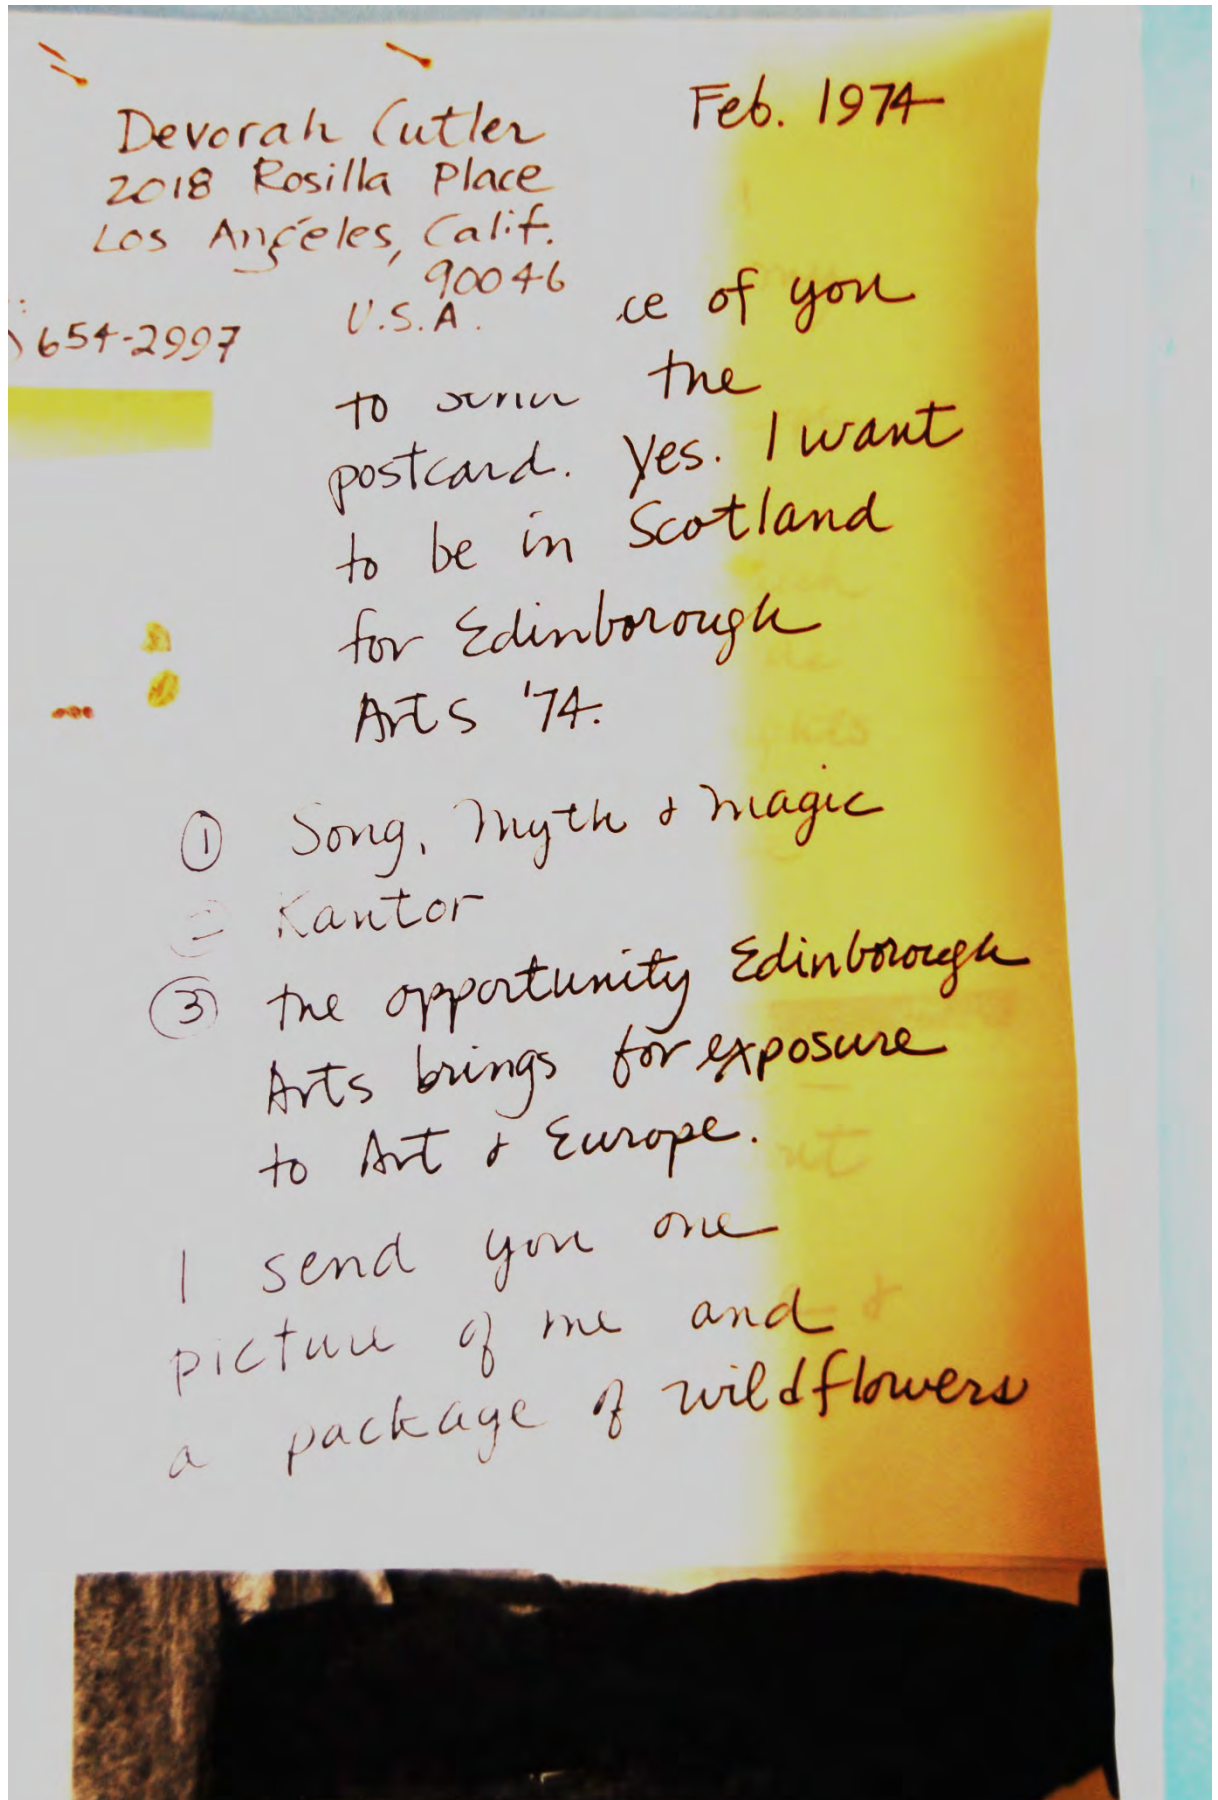 Feb. 1974
Devorah Cutler
2018 Rosilla Place
Los Angeles, Calif.
90046
U.S.A.
) 654-2997
ce of you
to the
postcard. Yes. I want
to be in Scotland
for Edinborough
Arts '74.
① Song, Myth & Magic
② Kantor
③ the opportunity Edinborough
Arts brings for exposure
to Art & Europe.
I send you one
picture of me and
a package of wildflowers